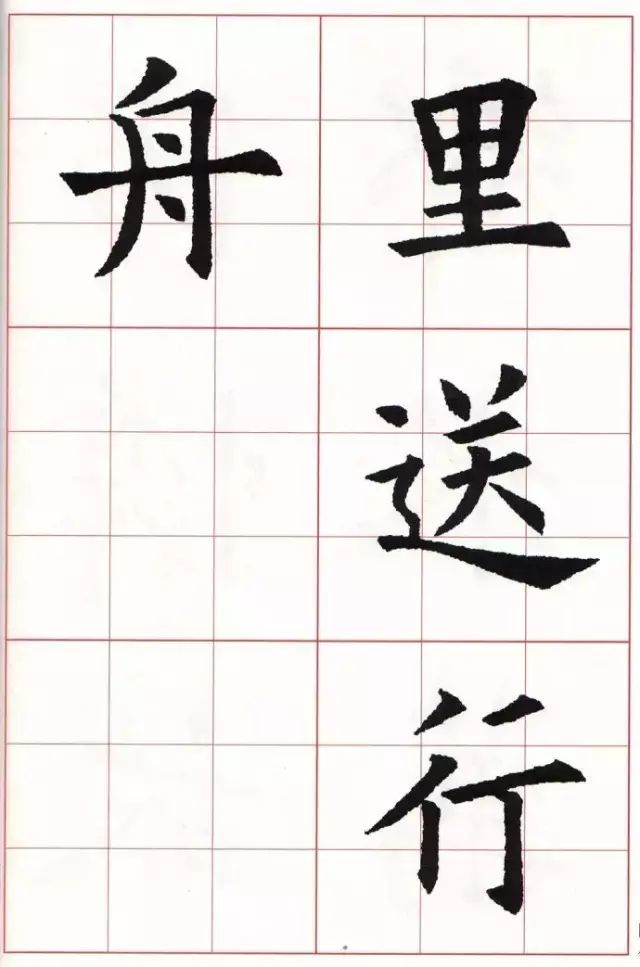 里送行
舟